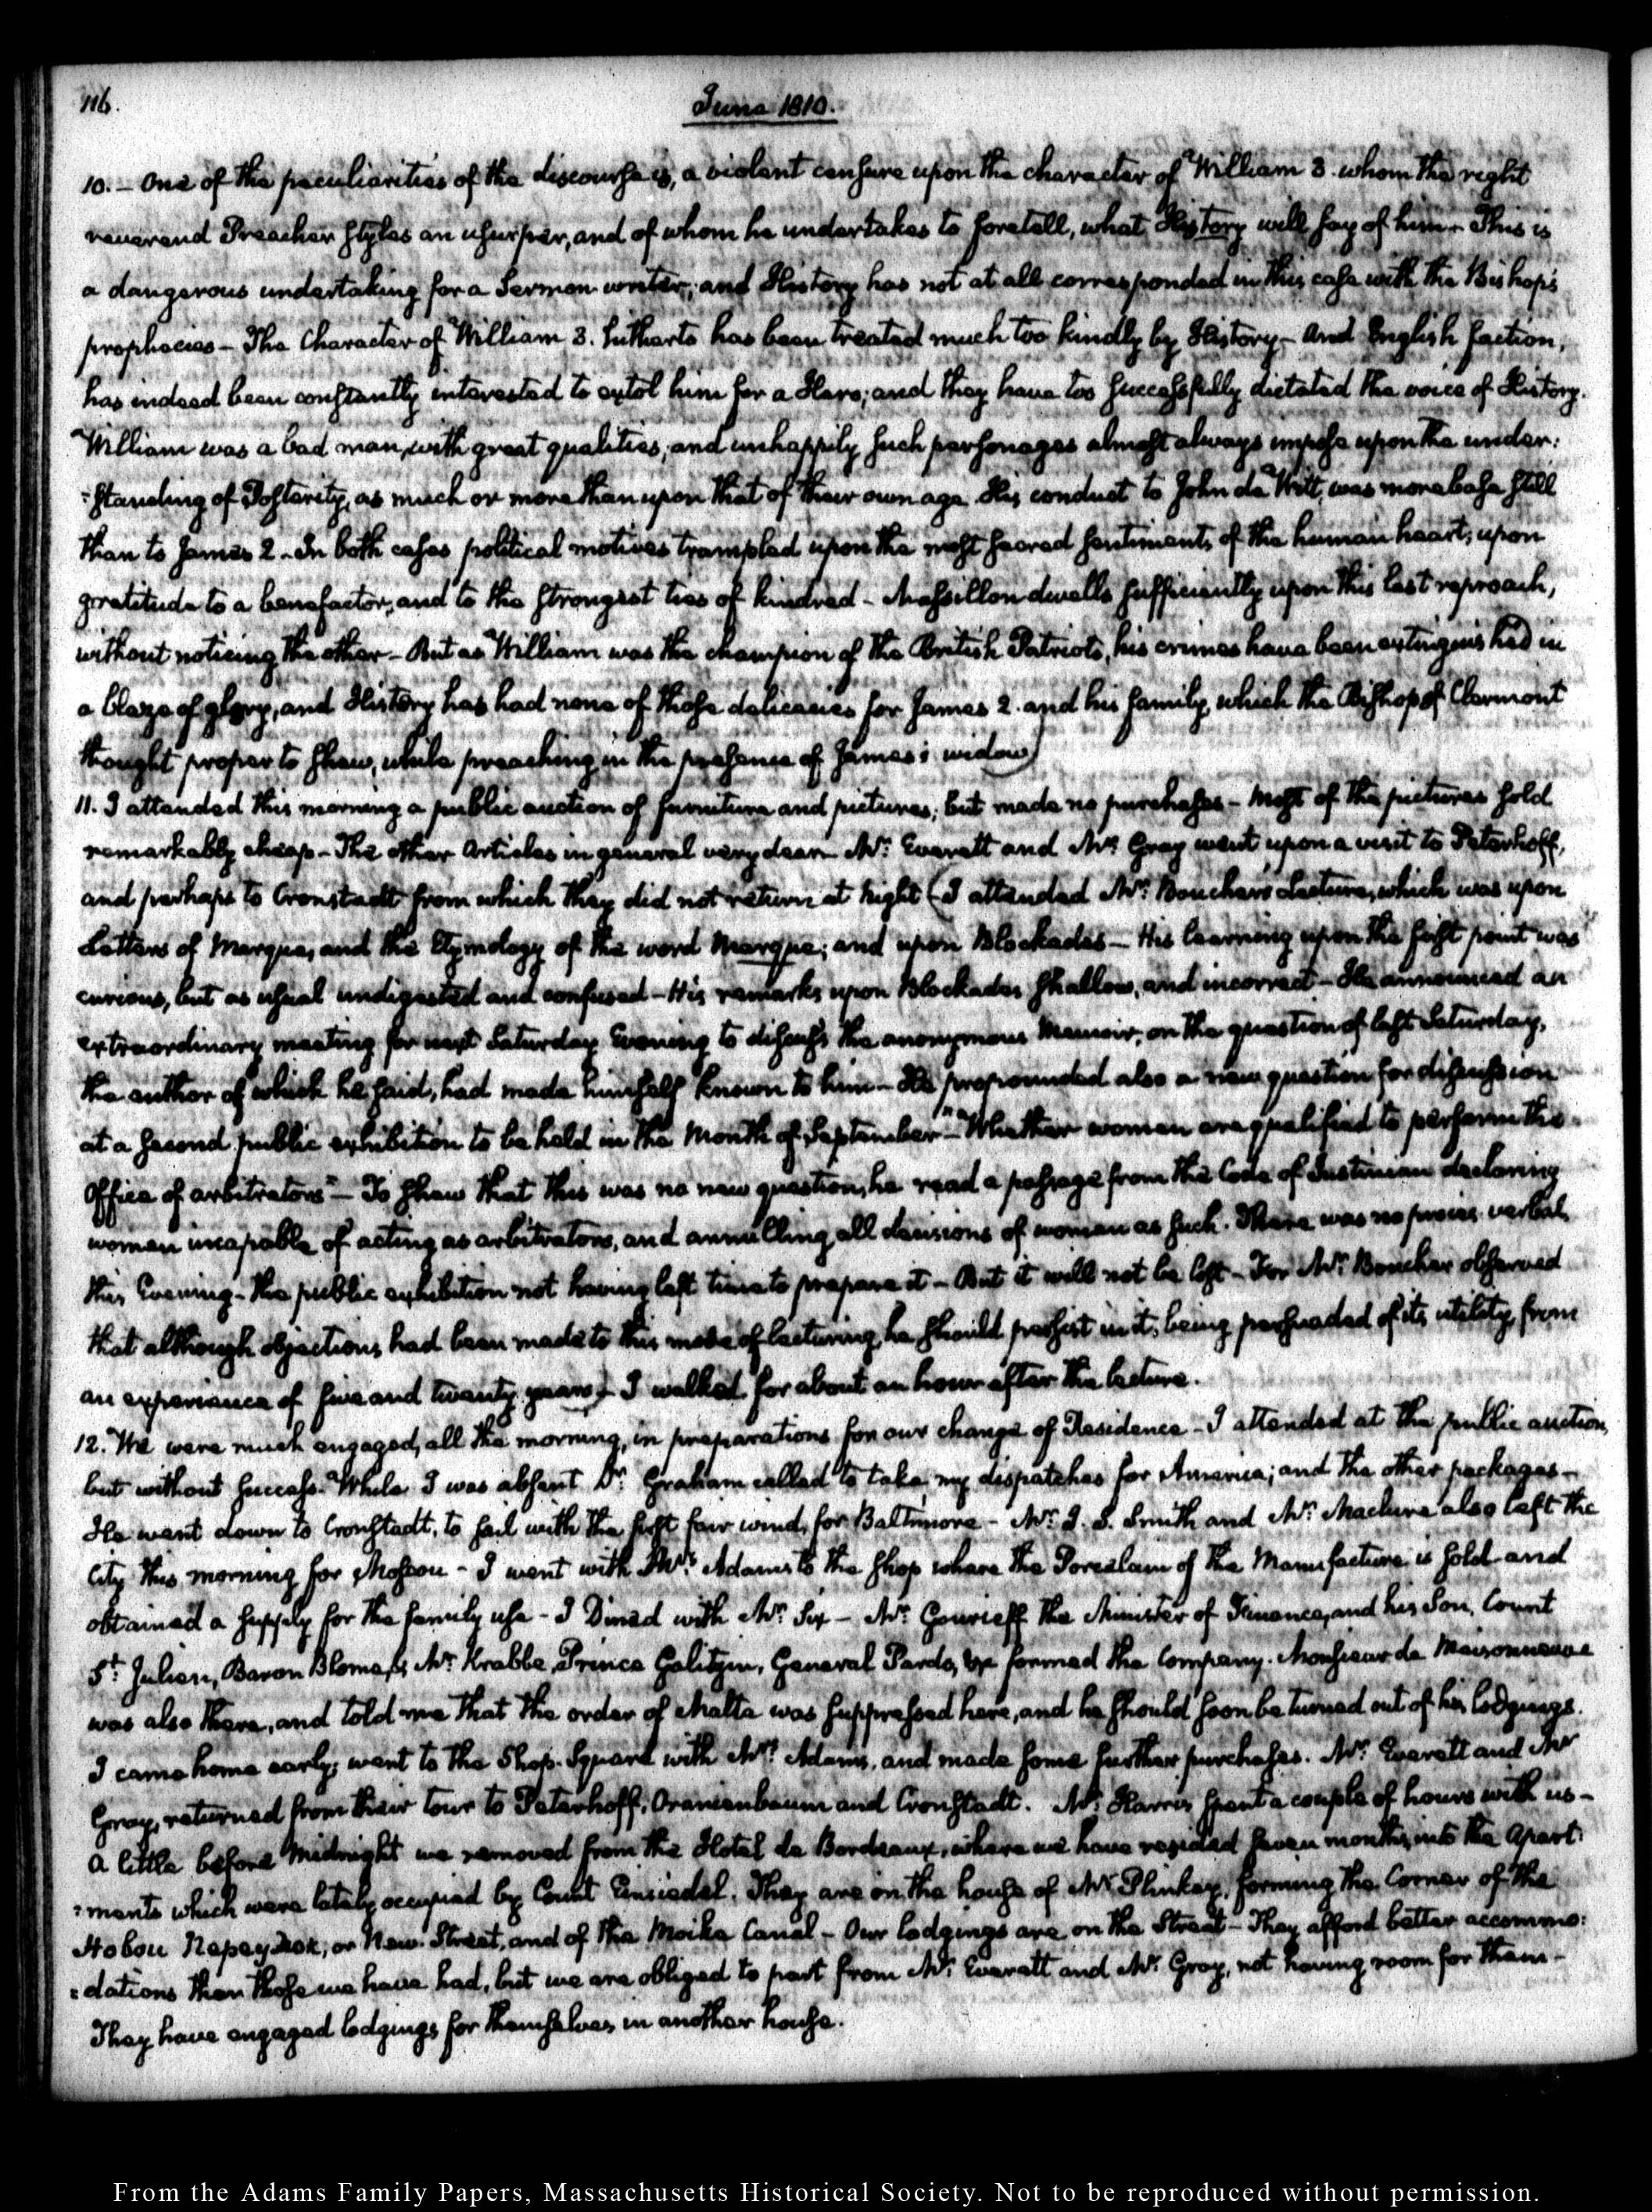 116.
June 1810.
10. – One of the peculiarities of the discourse is, a violent censure upon the character of William 3. whom the right
reverend Preacher styles an usurper, and of whom he undertakes to foretell, what History will say of him – This is
a dangerous undertaking for a Sermon writer; and History has not at all corresponded in this case with the Bishop's
prophecies – The Character of William 3. hitherto has been treated much too kindly by History – And English faction,
has indeed been constantly interested to extol him for a Hero; and they have too successfully dictated the voice of History.
William was a bad man, with great qualities; and unhappily such personages almost always impose upon the under:
:standing of Posterity, as much or more than upon that of their own age. His conduct to John de Witt, was more base still
than to James 2 – In both cases political motives trampled upon the most sacred sentiments of the human heart; upon
gratitude to a benefactor, and to the strongest ties of kindred – Massillon dwells sufficiently upon this last reproach,
without noticing the other – But as William was the champion of the British Patriots, his crimes have been extinguished in
a blaze of glory, and History has had none of those delicacies for James 2. and his family, which the Bishop of Clermont
thought proper to shew, while preaching in the presence of James's widow)
11. I attended this morning a public auction of furniture and pictures; but made no purchases – Most of the pictures sold
remarkably cheap – The other Articles in general very dear. Mr. Everett and Mr. Gray went upon a visit to Peterhoff,
and perhaps to Cronstadt from which they did not return at Night (I attended Mr. Boucher's Lecture, which was upon
Letters of Marque, and the Etymology of the word Marque; and upon Blockades – His learning upon the first point was
curious, but as usual undigested and confused – His remarks upon Blockades shallow, and incorrect – He announced an
extraordinary meeting for next Saturday Evening to discuss the anonymous Memoir, on the question of last Saturday,
the author of which he said, had made himself known to him – He propounded also a new question for discussion
at a second public exhibition to be held in the Month of September – "Whether women are qualified to perform the
Office of arbitrators" – To shew that this was no new question, he read a passage from the Code of Justinian declaring
women incapable of acting as arbitrators, and annulling all decisions of women as such. There was no procès verbal,
this Evening – the public exhibition not having left time to prepare it – But it will not be lost – For Mr. Boucher observed
that although objections had been made to this mode of lecturing, he should persist in it, being persuaded of its utility from
an experience of five and twenty years) – I walked for about an hour after the lecture.
12. We were much engaged, all the morning, in preparations for our change of Residence – I attended at the public auction,
but without success. While I was absent Dr. Graham called to take my dispatches for America; and the other packages –
He went down to Cronstadt, to sail with the first fair wind, for Baltimore – Mr. J. S. Smith and Mr. Maclure also left the
City this morning for Moscow – I went with Mrs. Adams to the shop where the Porcelain of the Manufacture is sold and
obtained a supply for the family use – I Dined with Mr. Six – Mr. Gourieff the Minister of Finance, and his Son, Count
St. Julien, Baron Blome, Mr. Krabbe, Prince Galitzin, General Pardo, &c formed the Company. Monsieur de Maisonneuve
was also there, and told me that the order of Malta was suppressed here, and he should soon be turned out of his lodgings.
I came home early; went to the Shop-Square with Mrs. Adams, and made some further purchases. Mr. Everett and Mr
Gray, returned from their tour to Peterhoff, Oranienbaum and Cronstadt. Mr. Harris spent a couple of hours with us –
a little before Midnight we removed from the Hotel de Bordeaux, where we have resided seven months, into the Apart:
:ments which were lately occupied by Count Einsiedel. They are on the house of Mr Plinkey, forming the Corner of the
Nobou, or New Street, and of the Moika Canal – Our lodgings are on the Street – They afford better accommo:
:dations than those we have had, but we are obliged to part from Mr. Everett and Mr. Gray, not having room for them –
They have engaged lodgings for themselves in another house.
From the Adams Family Papers, Massachusetts Historical Society. Not to be reproduced without permission.